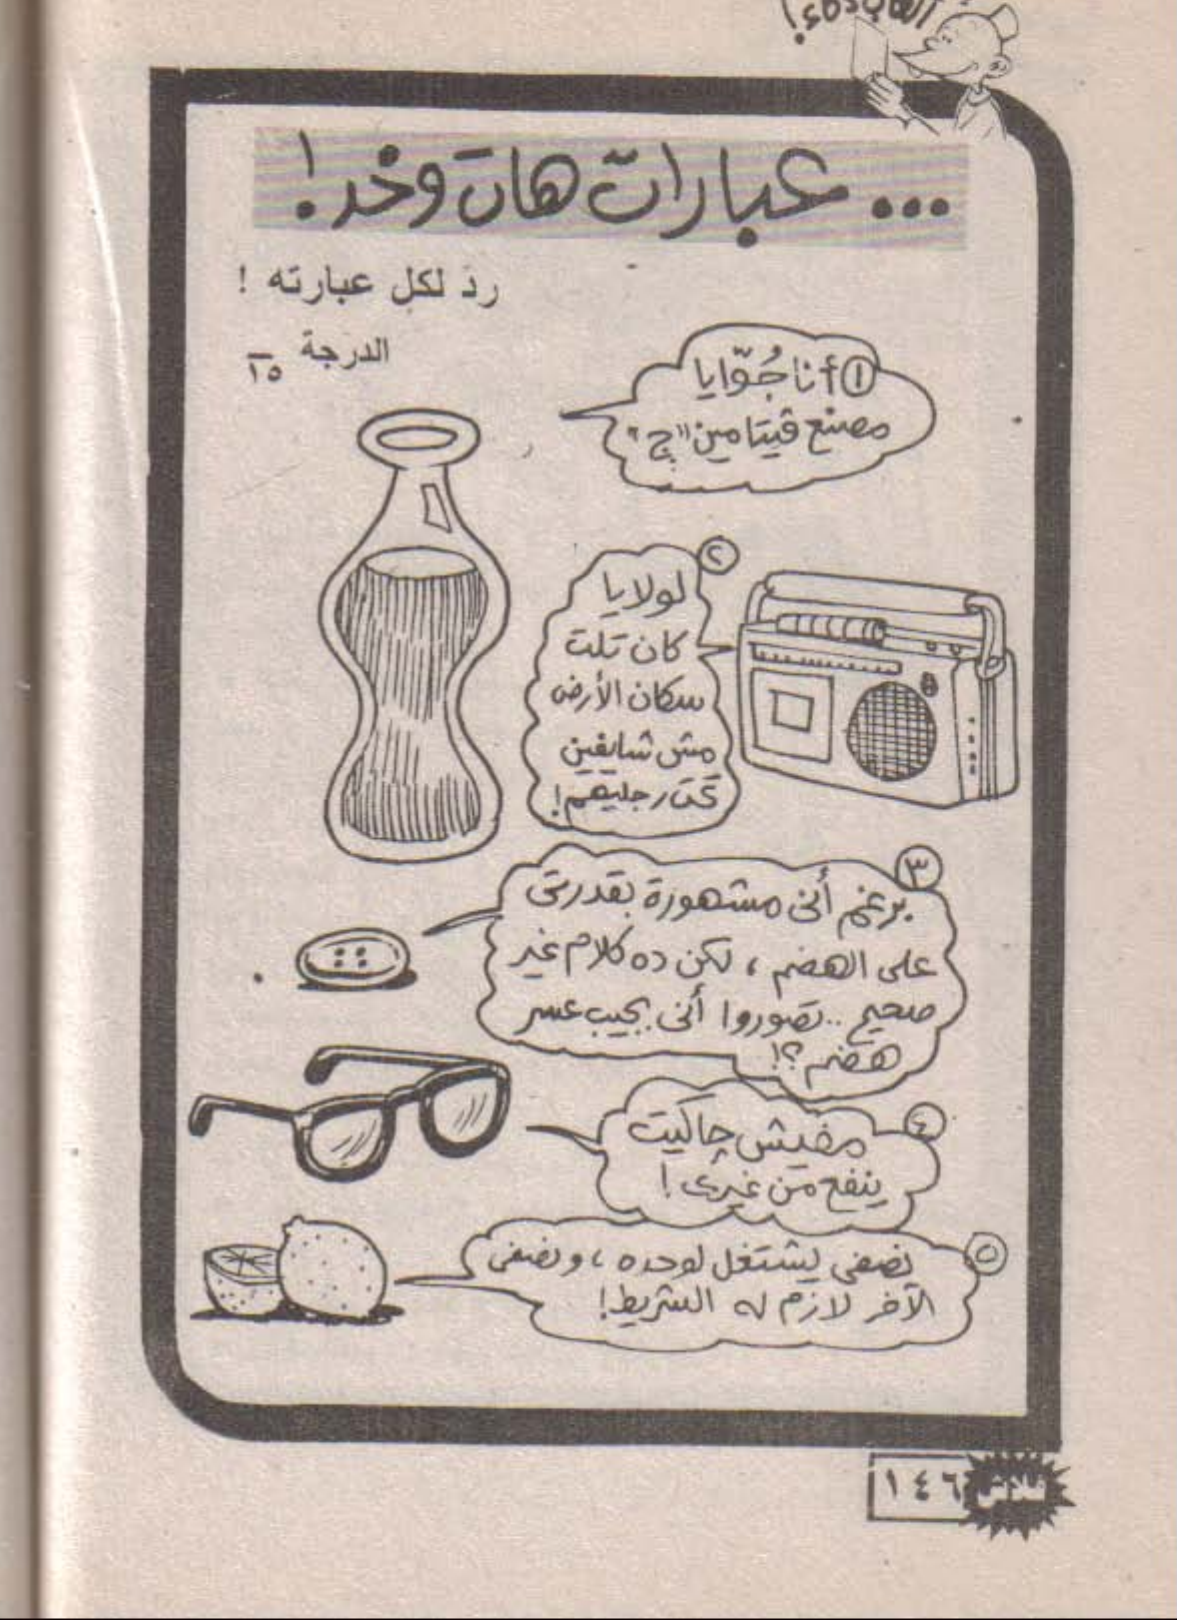 ألعاب ذكاء!
... عبارات هات وخد!
ردَ لكل عبارته !
الدرجة ١٥
١ أنا جُوّايا
مصنع ڤيتامين "ج"
٢
لولايا
كان تلت
سكان الأرض
مش شايفين
تحت رجليهم!
٣
برغم أنى مشهورة بقدرتى
على الهضم ، لكن ده كلام غير
صحيح .. تصوروا أنى بجيب عسر
هضم ؟!
٤
مفيش چاكيت
ينفع من غيرى !
٥
نصفى يشتغل لوحده ، ونصفى
الآخر لازم له الشريط!
١٤٦